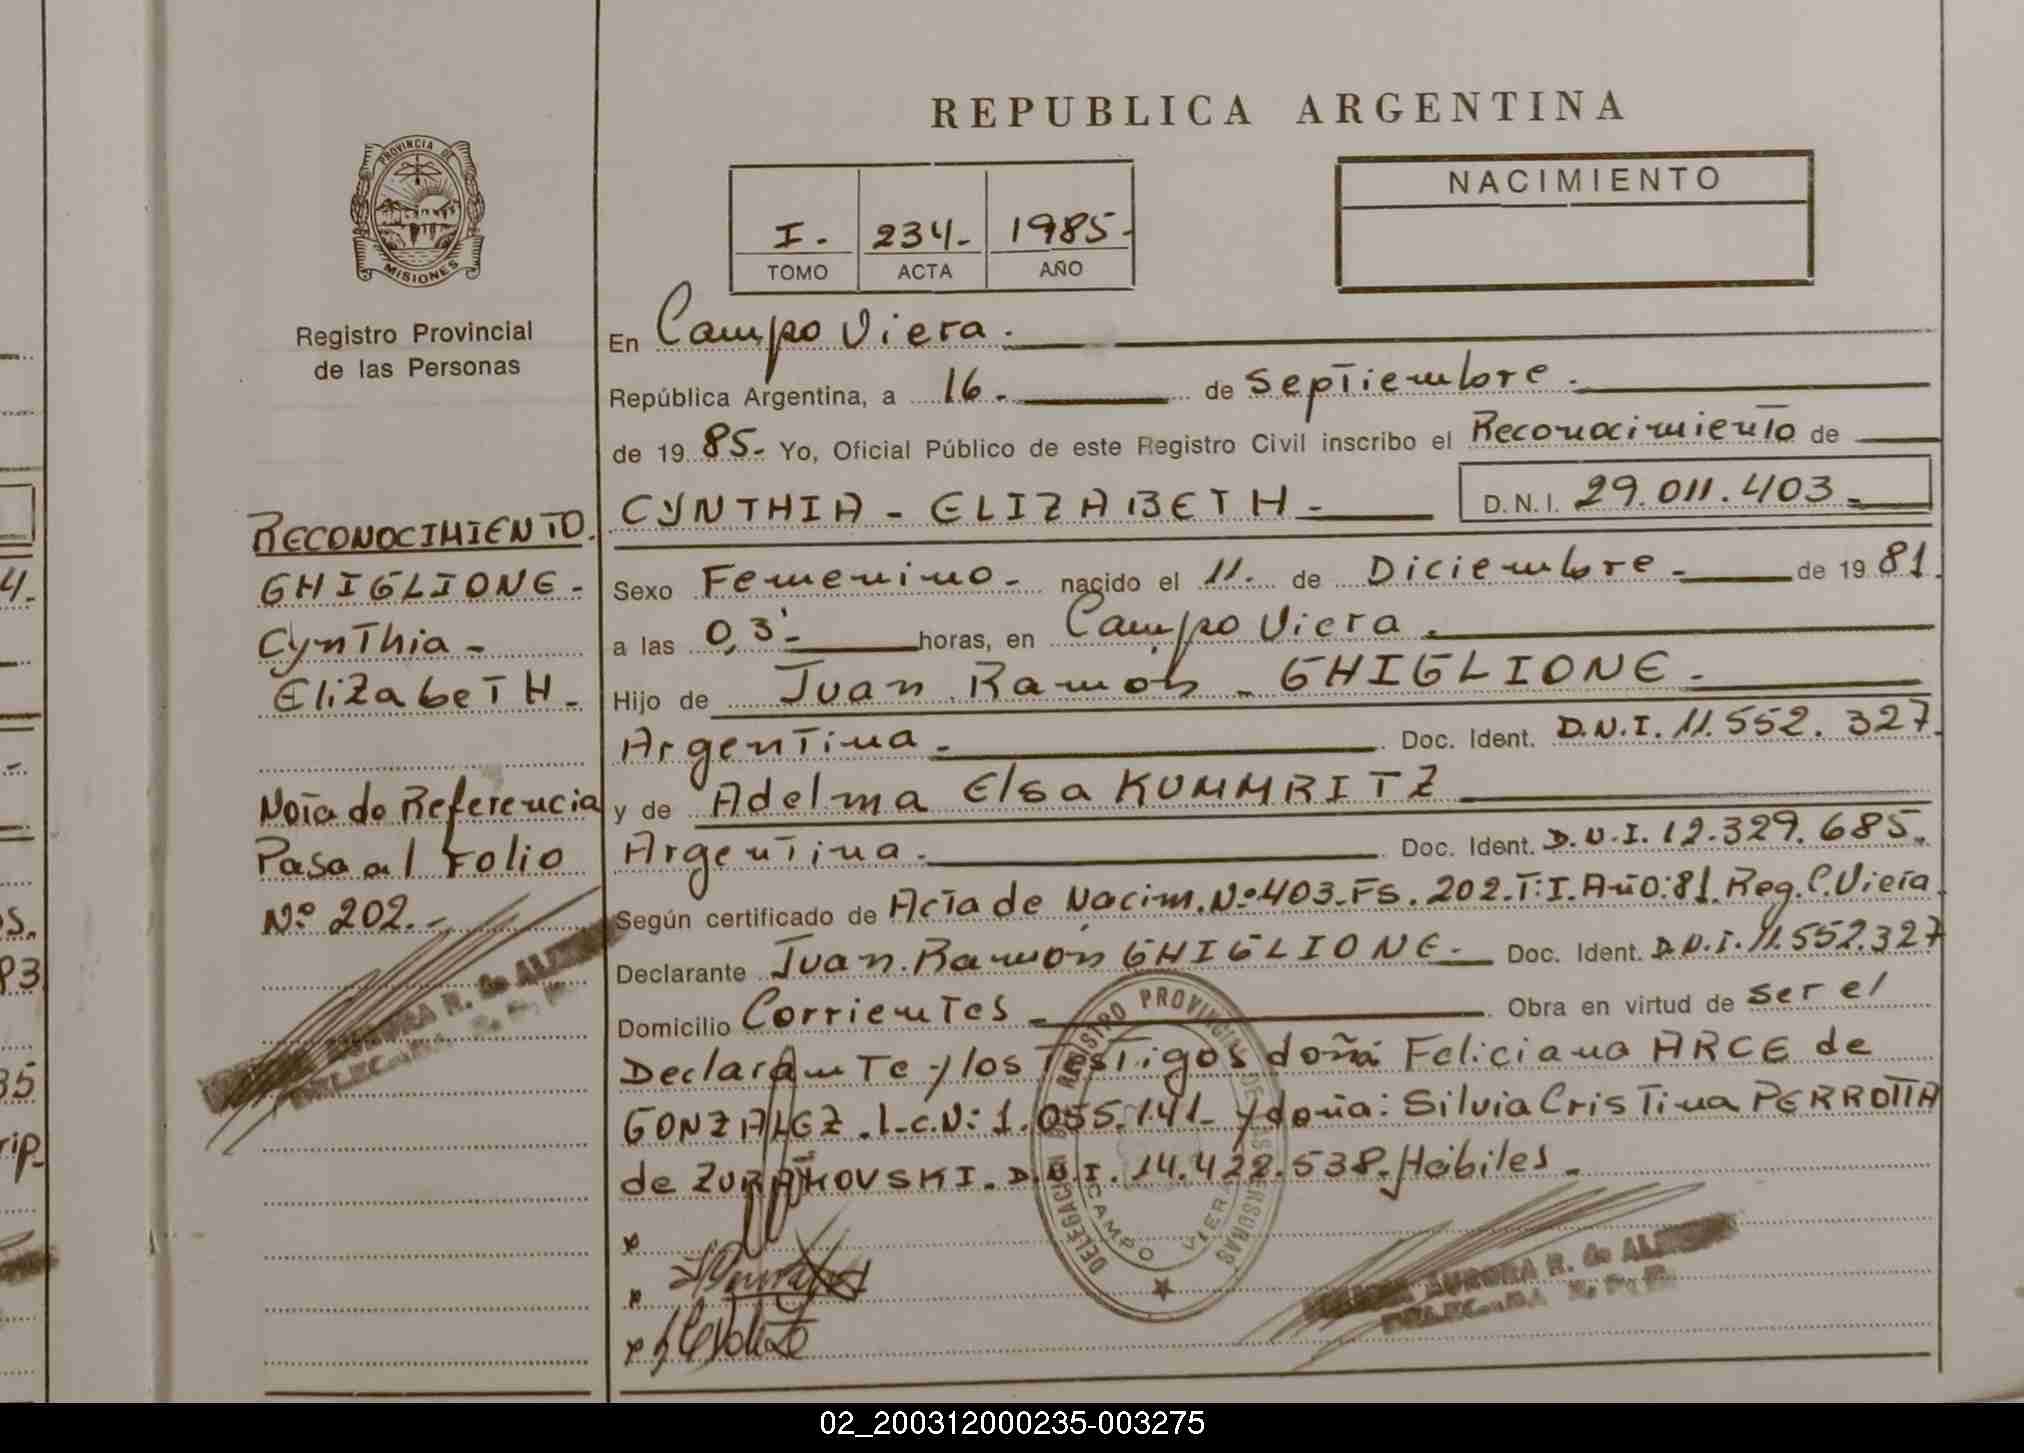 REPUBLICA ARGENTINA
PROVINCIA DE
MISIONES
Registro Provincial
de las Personas
I. 234- 1985-
TOMO ACTA AÑO
NACIMIENTO
En Campo Viera.
República Argentina, a 16- de Septiembre.
de 19 85- Yo, Oficial Público de este Registro Civil inscribo el Reconocimiento de
CYNTHIA - ELIZABETH - D.N.I. 29.011.403-
Sexo Femenino- nacido el 11. de Diciembre- de 19 81.
a las 0,3'- horas, en Campo Viera.
Hijo de Juan Ramón - GHIGLIONE.
Argentina. Doc. Ident. D.N.I. 11.552.327.
y de Adelma Elsa KUMMRITZ
Argentina. Doc. Ident. D.N.I. 12.329.685.
Según certificado de Acta de Nacim. Nº 403-Fs. 202-T:I. Año:81. Reg. C. Viera.
Declarante Juan Ramón GHIGLIONE- Doc. Ident. D.N.I. 11.552.327
Domicilio Corrientes - Obra en virtud de ser el
Declarante y los Testigos doña Feliciana ARCE de
GONZALEZ. L.C.N: 1.055.141- y doña: Silvia Cristina PERROTTA
de D.N.I. 14.422.538. Hábiles.
RECONOCIMIENTO.
GHIGLIONE-
Cynthia-
Elizabeth-
Nota de Referencia
Pasa al Folio
Nº 202.-
AURORA R. de
REGISTRO PROVINCIAL DE LAS PERSONAS
DELEGACION
CAMPO VIERA
AURORA R. de
DELEGADA R. P. P.
4.
S.
93
35
rip-
02_200312000235-003275